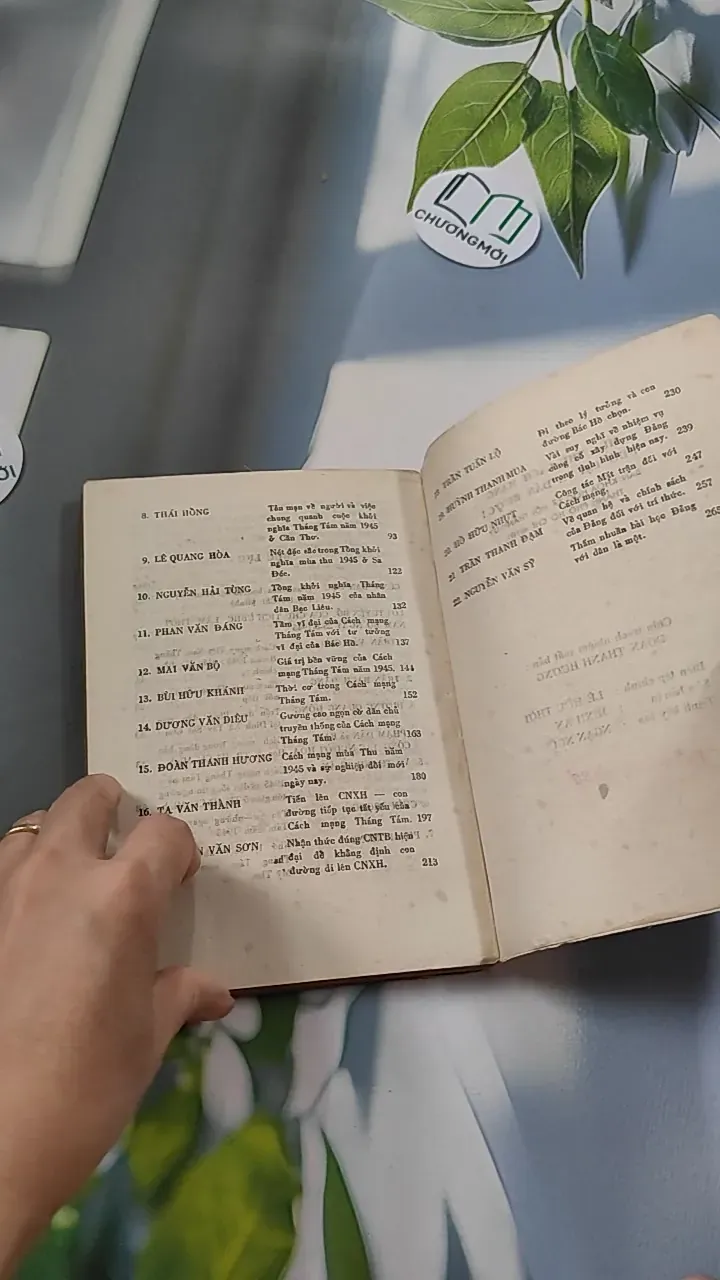 CHƯƠNGMỚI
8. THÁI HỒNG
Tản mạn về người và việc
chung quanh cuộc khởi
nghĩa Tháng Tám năm 1945
ở Cần Thơ. 93
9. LÊ QUANG HÒA
Nét đặc sắc trong Tổng khởi
nghĩa mùa thu 1945 ở Sa
Đéc. 122
10. NGUYỄN HẢI TÙNG
Tổng khởi nghĩa Tháng
Tám năm 1945 của nhân
dân Bạc Liêu. 132
11. PHAN VĂN ĐÁNG
Tầm vĩ đại của Cách mạng
Tháng Tám với tư tưởng
vĩ đại của Bác Hồ. 137
12. MAI VĂN BỘ
Giá trị bền vững của Cách
mạng Tháng Tám năm 1945. 144
13. BÙI HỮU KHÁNH
Thời cơ trong Cách mạng
Tháng Tám. 152
14. DƯƠNG VĂN DIÊU
Gương cao ngọn cờ dân chủ
truyền thống của Cách mạng
Tháng Tám. 163
15. ĐOÀN THANH HƯƠNG
Cách mạng mùa Thu năm
1945 và sự nghiệp đổi mới
ngày nay. 180
16. TẠ VĂN THÀNH
Tiến lên CNXH — con
đường tiếp tục tất yếu của
Cách mạng Tháng Tám. 197
VĂN SƠN
Nhận thức đúng CNTB hiện
đại để khẳng định con
đường đi lên CNXH. 213
TRẦN TUẤN LỘ
Đi theo lý tưởng và con
đường Bác Hồ chọn. 230
HUỲNH THANH MUA
Vài suy nghĩ về nhiệm vụ
củng cố xây dựng Đảng
trong tình hình hiện nay. 239
HỒ HỮU NHỰT
Công tác Mặt trận đối với
Cách mạng. 247
TRẦN THANH ĐẠM
Về quan hệ và chính sách
của Đảng đối với trí thức. 257
22 NGUYỄN VĂN SỸ
Thấm nhuần bài học Đảng
với dân là một. 265